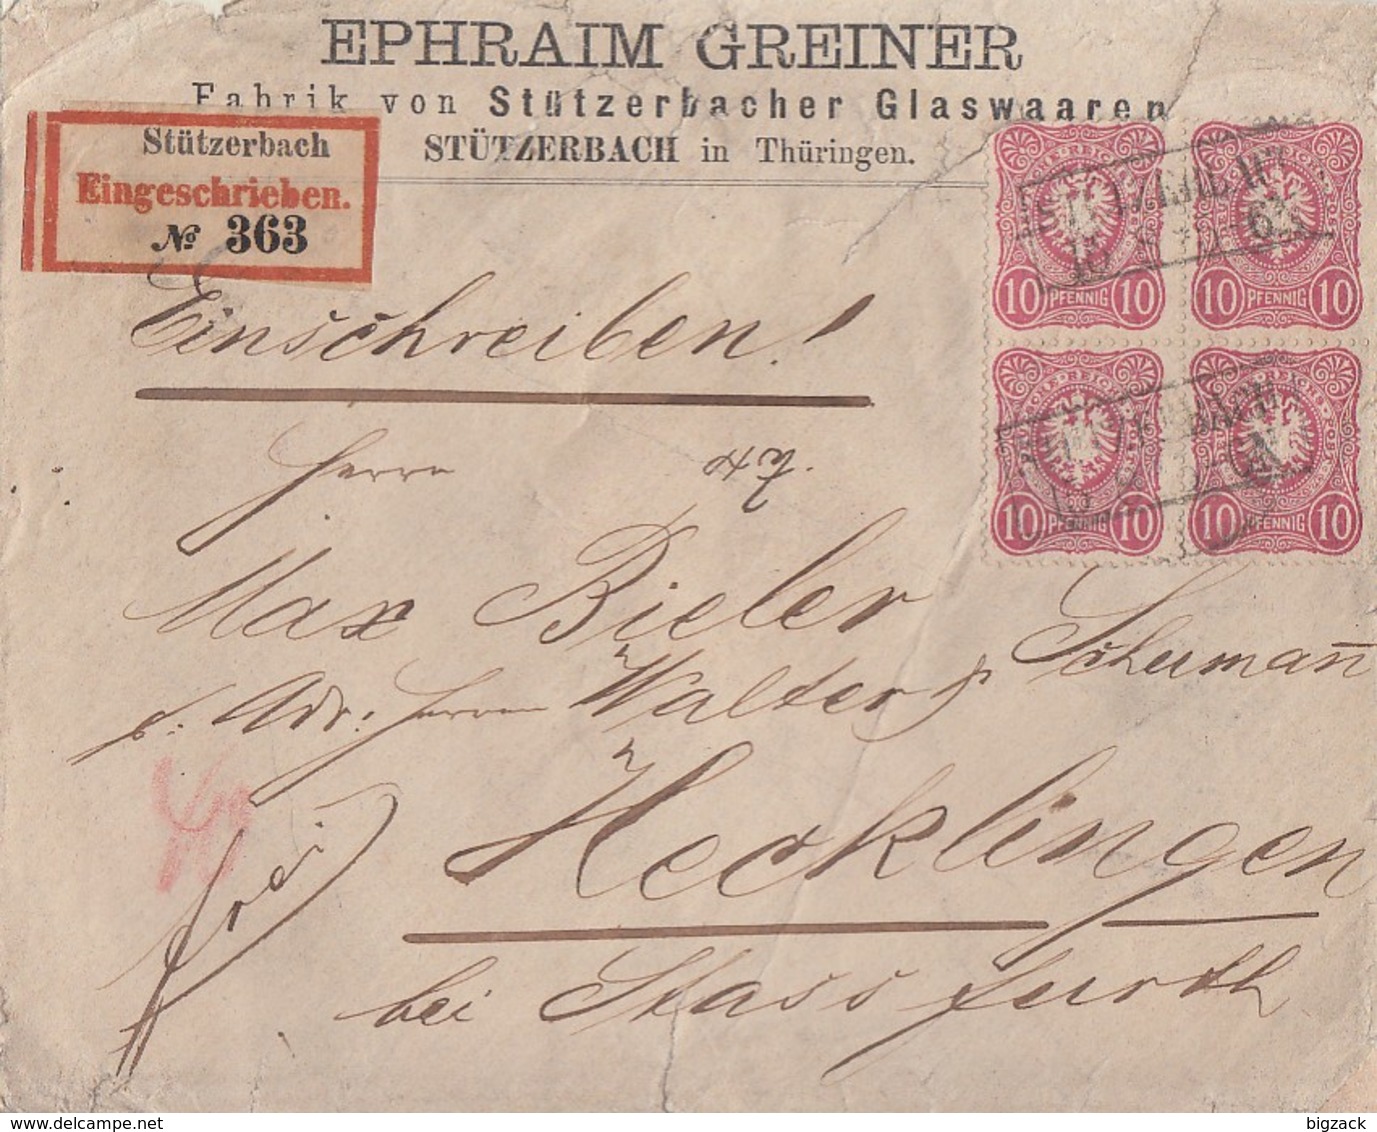 EPHRAIM GREINER
Fabrik von Stützerbacher Glaswaaren
STÜTZERBACH in Thüringen.
Stützerbach
Eingeschrieben.
№ 363
10 PFENNIG 10
10 PFENNIG 10
10 PFENNIG 10
10 PFENNIG 10
Einschreiben!
Herrn
Max Bieler
p. Adr: Herren Walter & Schuman̄
Hecklingen
frei
bei Stassfurth
delcampe.net
bigzack